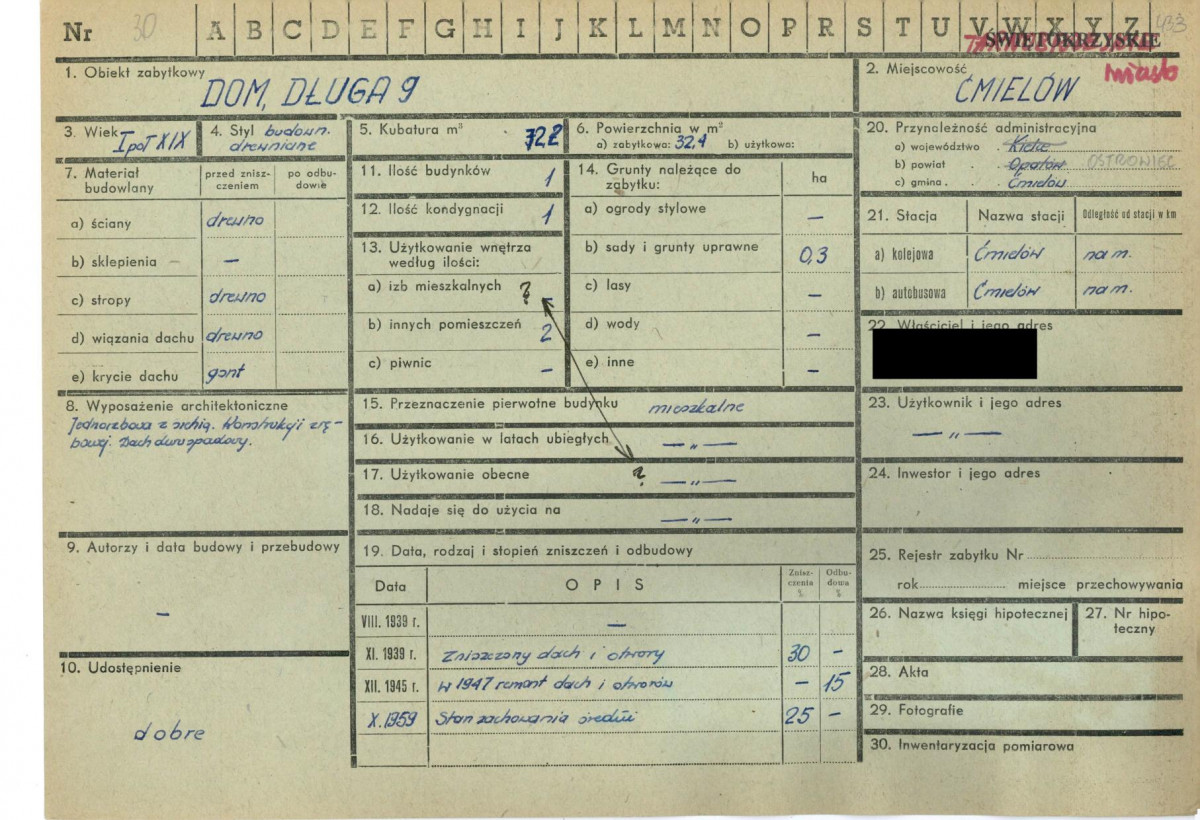 Nr 30 A B C D E F G H I J K L M N O P R S T U V W X Y Z 433
ŚWIĘTOKRZYSKIE
1. Obiekt zabytkowy
DOM, DŁUGA 9
2. Miejscowość miasto
ĆMIELÓW
3. Wiek I poł XIX
4. Styl budown.
drewniane
5. Kubatura m³
72,2
6. Powierzchnia w m²
a) zabytkowa: 32,4 b) użytkowa:
20. Przynależność administracyjna
a) województwo . Kielce
b) powiat . Opatów OSTROWIEC
c) gmina . . Ćmielów
7. Materiał
budowlany
przed znisz-
czeniem
po odbu-
dowie
a) ściany drewno
b) sklepienia – –
c) stropy drewno
d) wiązania dachu drewno
e) krycie dachu gont
11. Ilość budynków 1
12. Ilość kondygnacji 1
13. Użytkowanie wnętrza
według ilości:
a) izb mieszkalnych ? –
b) innych pomieszczeń 2
c) piwnic –
14. Grunty należące do
zabytku:
ha
a) ogrody stylowe –
b) sady i grunty uprawne 0,3
c) lasy –
d) wody –
e) inne –
21. Stacja Nazwa stacji Odległość od stacji w km
a) kolejowa Ćmielów na m.
b) autobusowa Ćmielów na m.
22. Właściciel i jego adres
8. Wyposażenie architektoniczne
Jednoizbowa z sienią. Konstrukcji zrę-
bowej. Dach dwuspadowy.
15. Przeznaczenie pierwotne budynku mieszkalne
16. Użytkowanie w latach ubiegłych — „ —
17. Użytkowanie obecne ? — „ —
18. Nadaje się do użycia na — „ —
23. Użytkownik i jego adres
— „ —
24. Inwestor i jego adres
9. Autorzy i data budowy i przebudowy
–
10. Udostępnienie
dobre
19. Data, rodzaj i stopień zniszczeń i odbudowy
Data OPIS Znisz-
czenia
% Odbu-
dowa
%
VIII. 1939 r. –
XI. 1939 r. Zniszczony dach i otwory 30 –
XII. 1945 r. W 1947 remont dach i otworów – 15
X. 1959 Stan zachowania średni 25 –
25. Rejestr zabytku Nr
rok miejsce przechowywania
26. Nazwa księgi hipotecznej
27. Nr hipo-
teczny
28. Akta
29. Fotografie
30. Inwentaryzacja pomiarowa